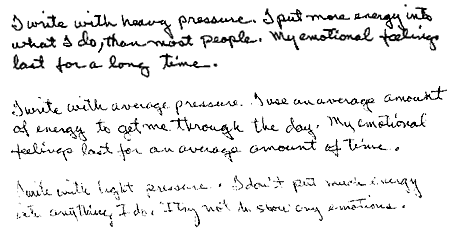 I write with heavy pressure. I put more energy into
what I do, than most people. My emotional feelings
last for a long time.
I write with average pressure. I use an average amount
of energy to get me through the day. My emotional
feelings last for an average amount of time.
I write with light pressure. I don't put much energy
into anything I do. I try not to show any emotions.